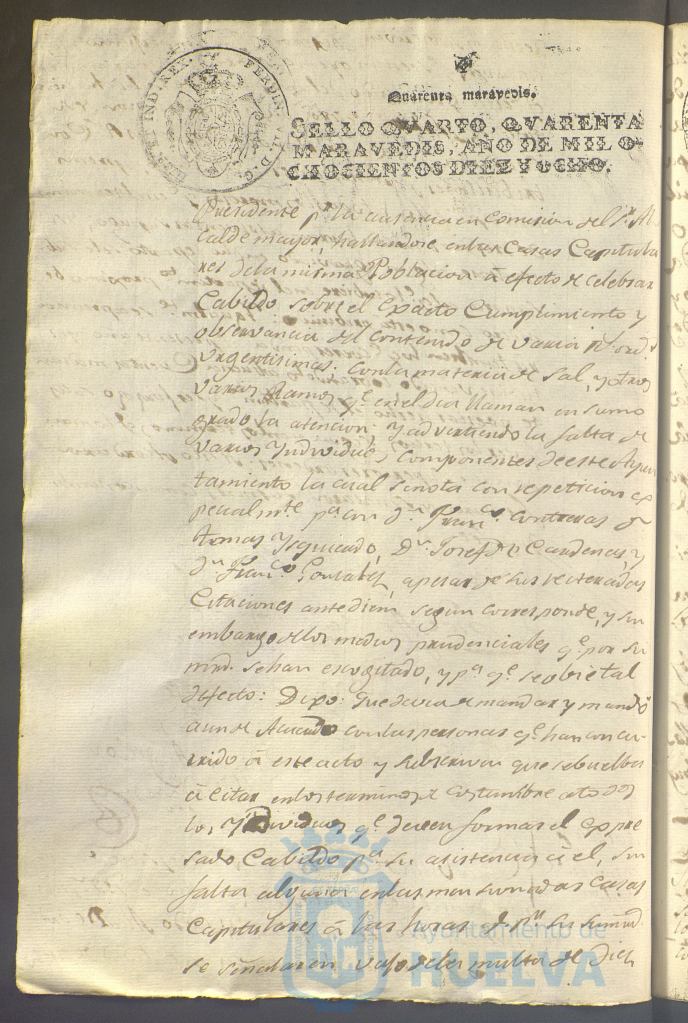 HISP. ET IND. REX. FERDIN. VII. D. G.
Quarenta maravedis.
SELLO QVARTO, QVARENTA
MARAVEDIS, AÑO DE MIL O-
CHOCIENTOS DIEZ Y OCHO.
Presidente pr. la ausencia en Comision del Sr. Al
calde mayor, hallandose en las Casas Capitula
res de la misma Poblacion á efecto de celebrar
Cabildo sobre el exacto Cumplimiento y
observancia del contenido de varias rs. ords.
urgentisimas: con la materia de Sal, y otros
varios Ramos qe. en el dia llaman en sumo
grado la atencion y advirtiendo la falta de
varios Yndividuos, componentes de este Ayun
tamiento la cual se nota con repeticion es
pecialmte. pa. con dn. Franco. Contreras dn.
Tomas Ysquierdo, Dn. Josef de Cardenas, y
dn. Franco. Gonzalez, apesar de sus reiteradas
Citaciones antediem segun corresponde, y sin
embargo de los medios prudenciales qe. por su
mrd. se han escogitado, y pa. qe. se obie tal
defecto: Dixo: que devia de mandar y mandó
aun de Acuerdo con las personas qe. han concu
rrido á este acto y subscrivan que se buelba
á citar en los terminos de costumbre a todos
los Yndividuos qe. deven formar el expre
sado Cabildo pa. su asistencia á el, sin
falta alguna en las mencionadas casas
Capitulares á las horas qe. pr. su mrd.
se señalaren, vajo de la multa de Diez
Ayuntamiento de
HUELVA